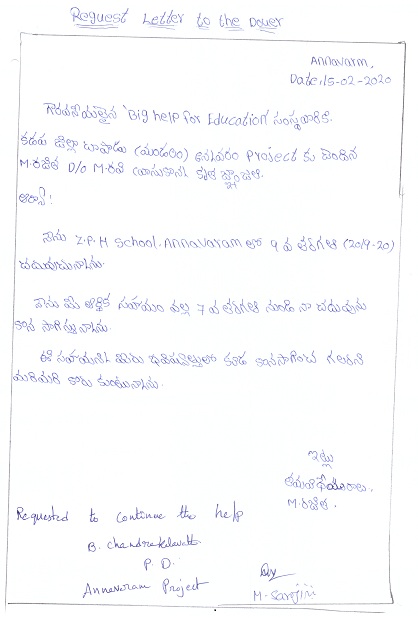 Request Letter to the Doner
Annavarm,
Date:15-02-2020
గౌరవనీయులైన 'Big help for Education' సంస్థవారికి
కడప జిల్లా చాపాడు (మండలం) అనవరం Project కు చెందిన
M.రజిత D/o M.రవి వ్రాయునది
ఆర్యా!
నేను Z.P.H School.Annavaram లో 9 వ తరగతి (2019-20)
చదువుచున్నాను.
నేను మీ ఆర్థిక సహాయం వల్ల 7 వ తరగతి నుండి నా చదువును
కొన సాగిస్తున్నాను.
ఈ సహాయాన్ని మీరు భవిష్యత్తులో కూడ కొనసాగించ గలరని
మరిమరి కోరు కుంటున్నాను.
ఇట్లు
తమ విధేయురాలు,
M.రజిత.
Requested to continue the help
B. Chandrakalavathi
P. D.
Annavaram Project
M. Sarojini